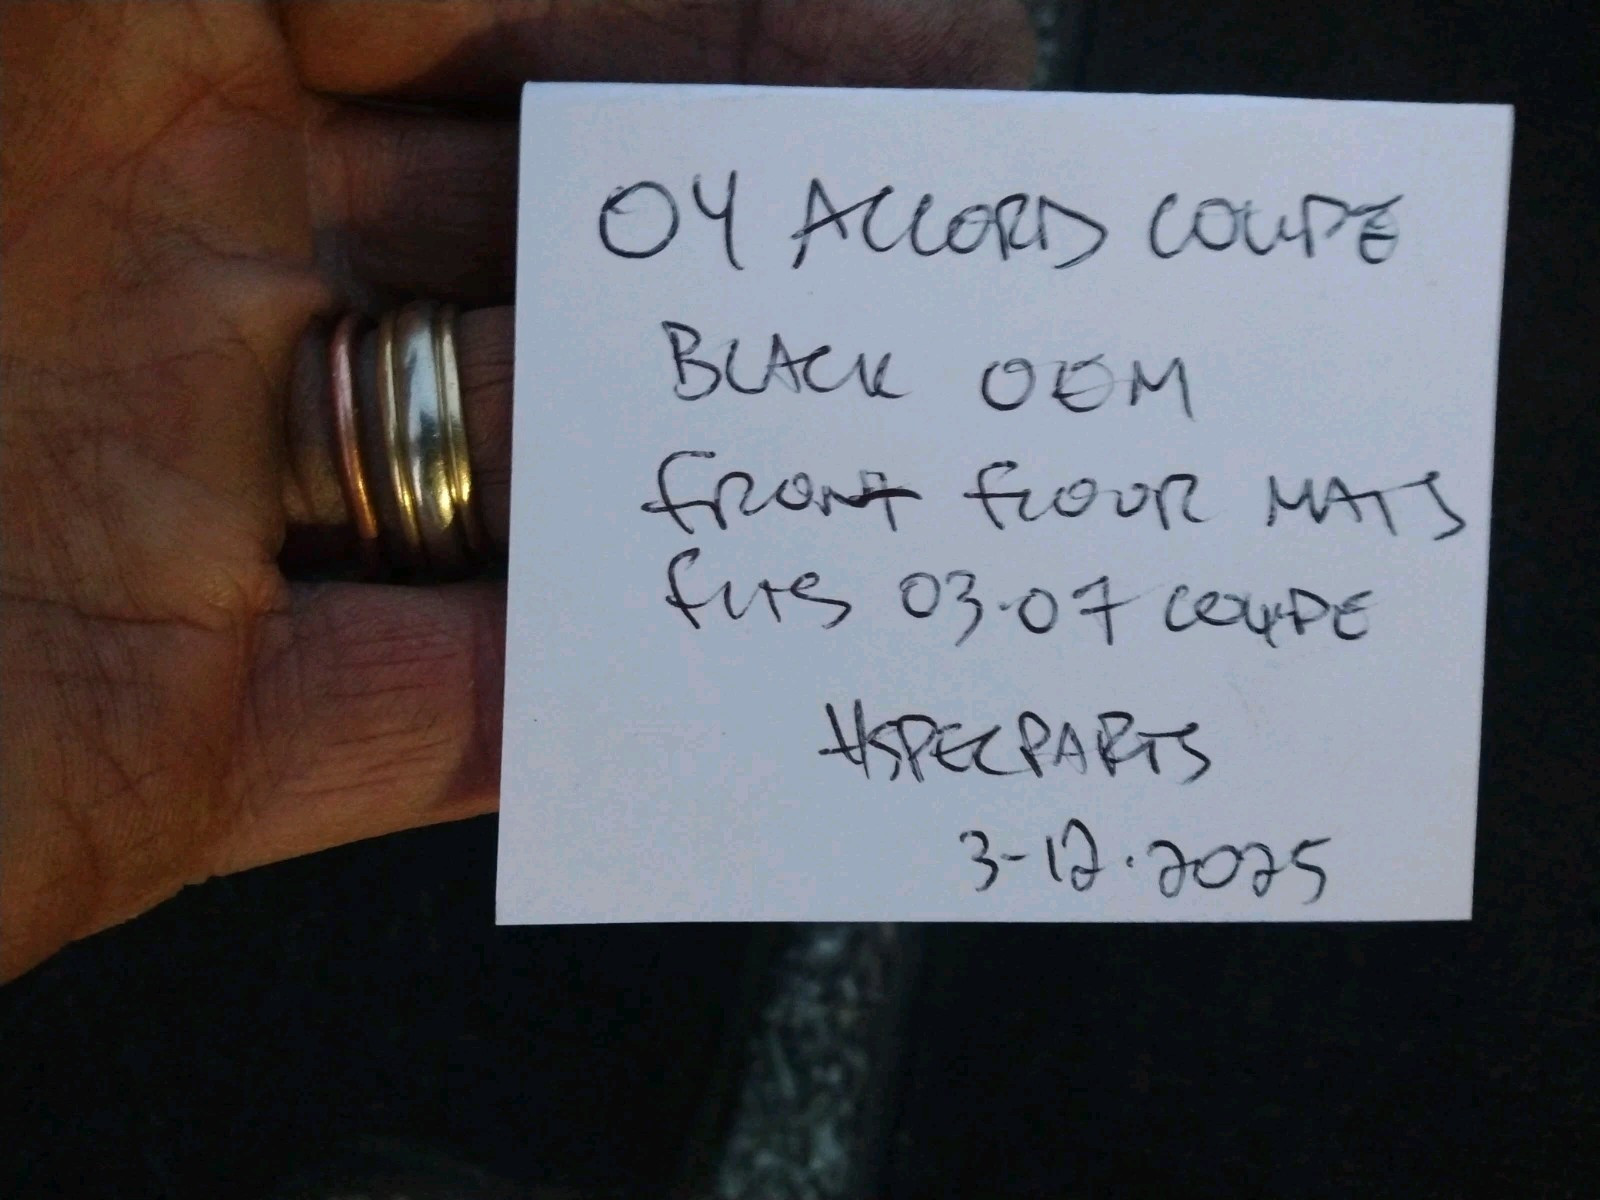 04 ACCORD COUPE
BLACK OEM
FRONT FLOOR MATS
FITS 03-07 COUPE
HSPECPARTS
3-12-2025